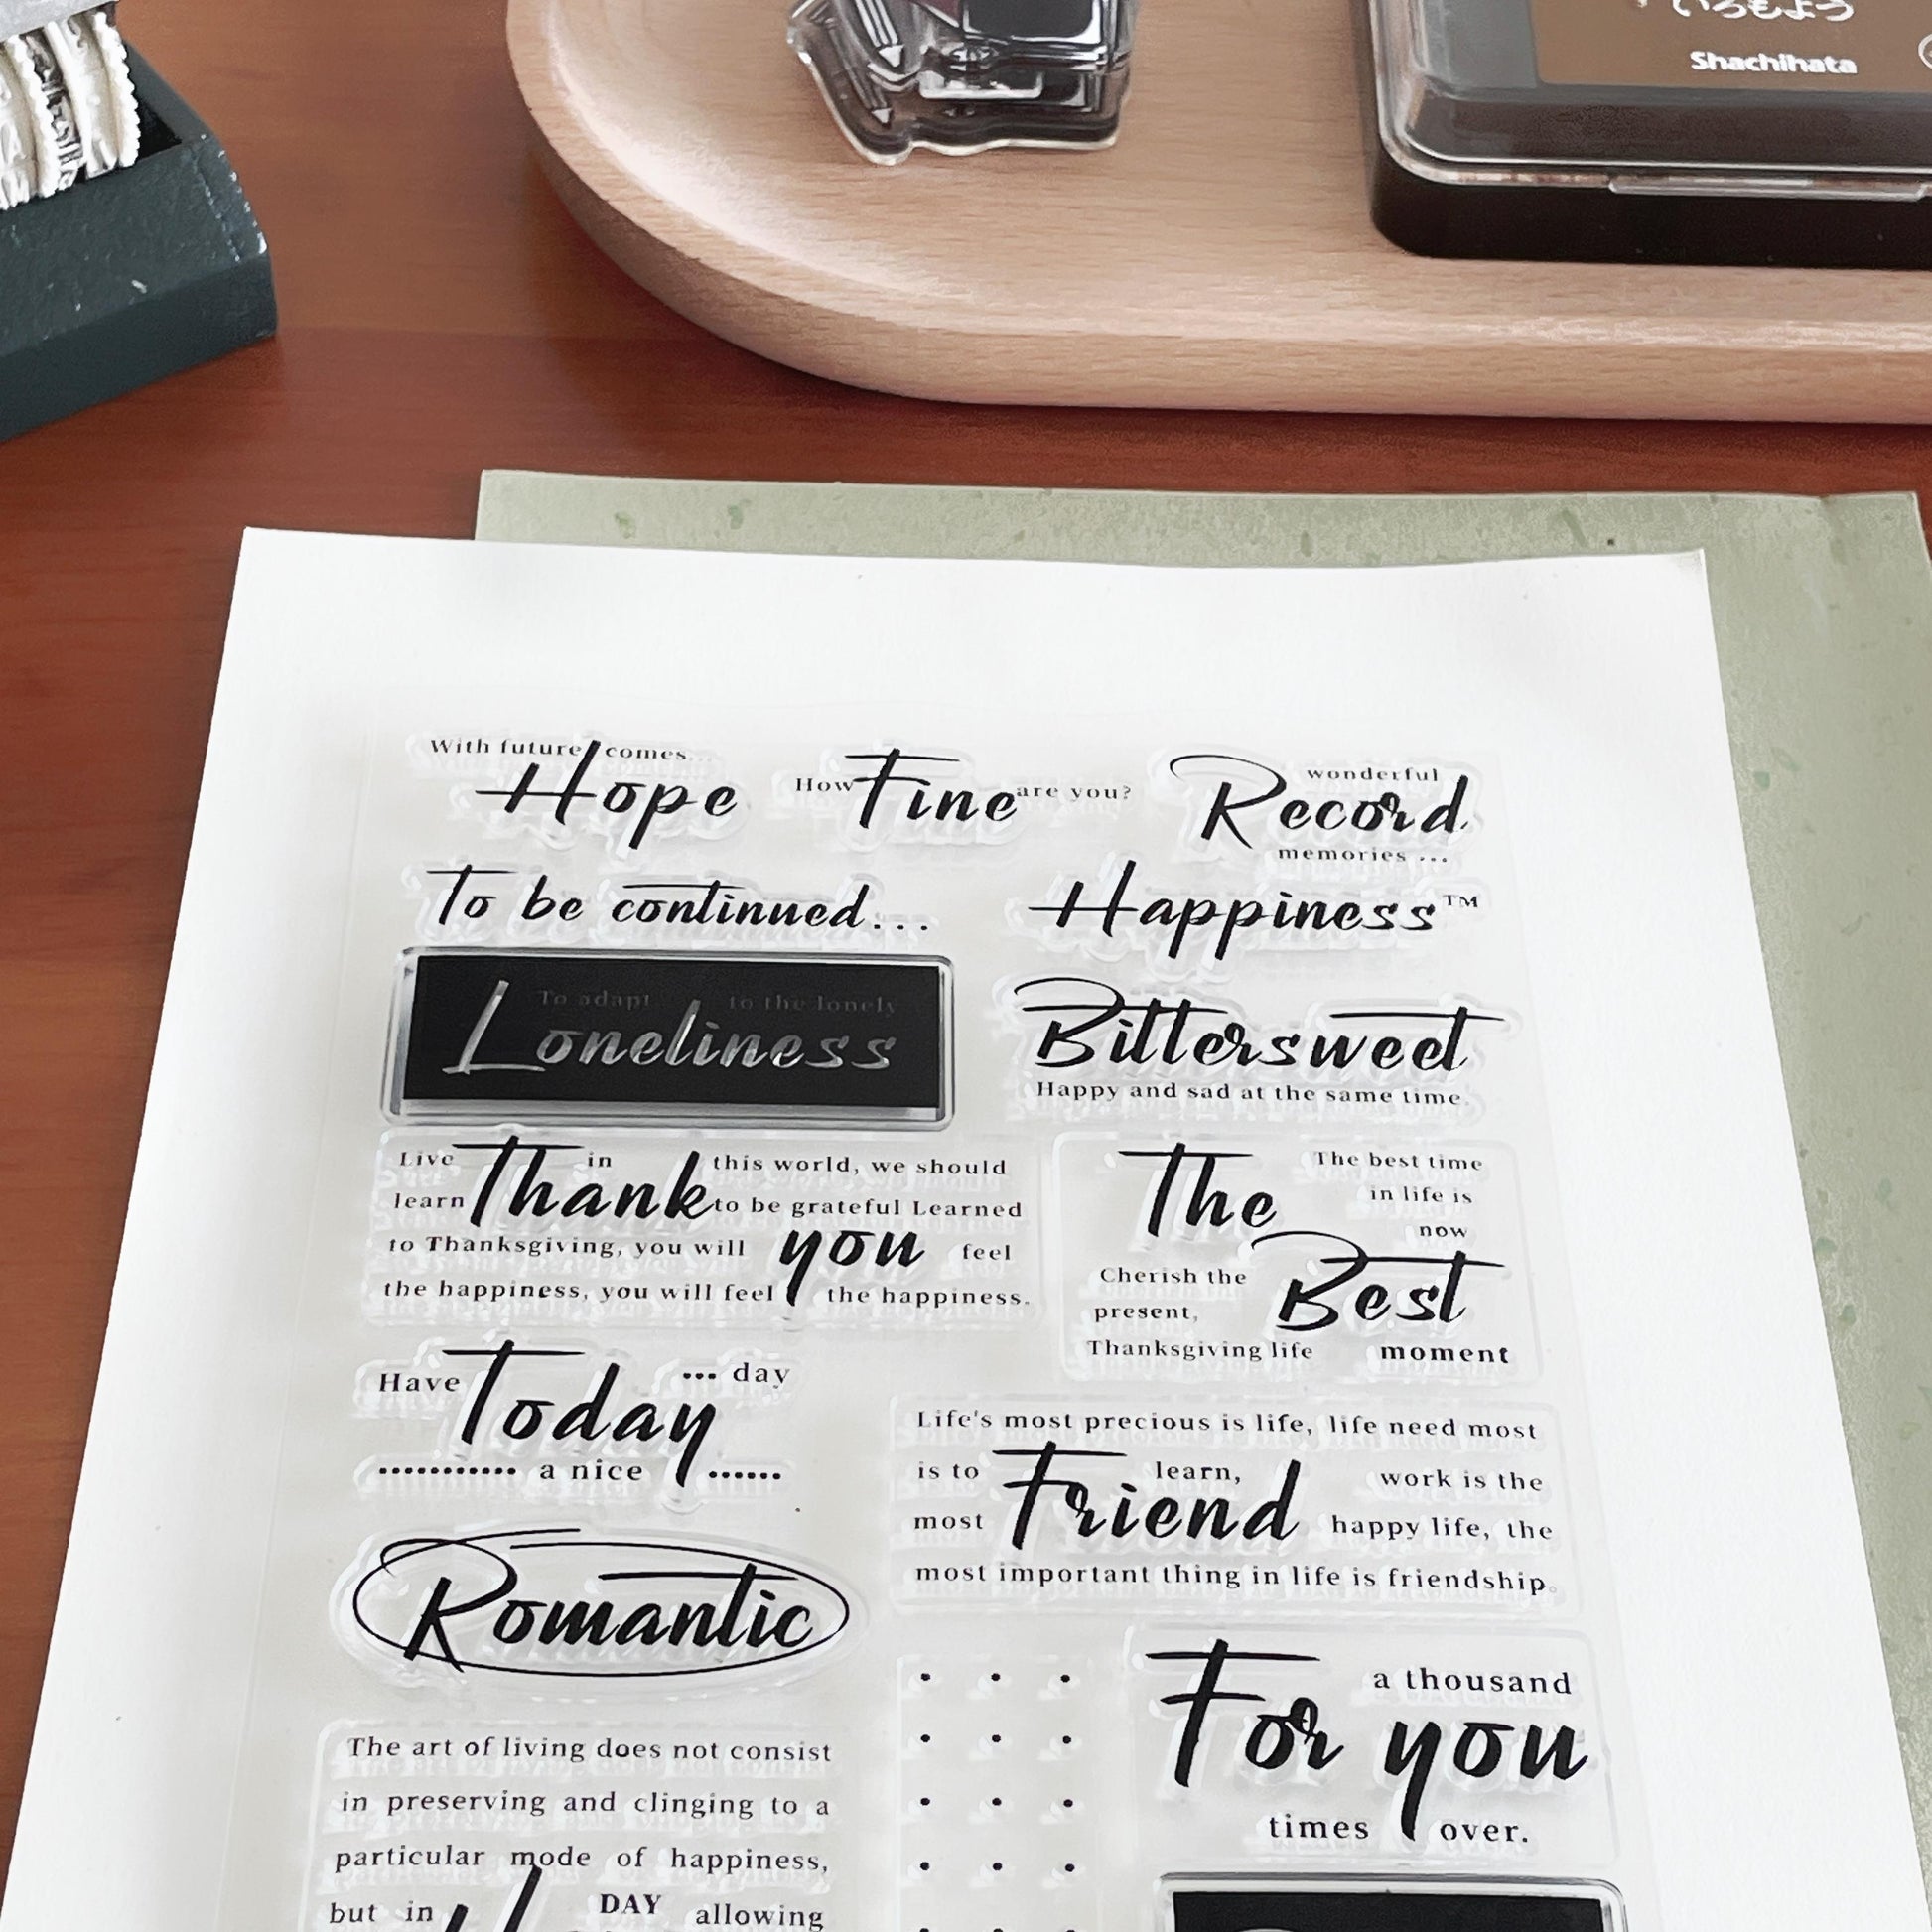 いろもよう
Shachihata
With future comes...
Hope
How Fine are you?
wonderful
Record
memories ...
To be continued...
Happiness™
To adapt to the lonely
Loneliness
Bittersweet
Happy and sad at the same time.
Live in this world, we should
learn Thank to be grateful Learned
to Thanksgiving, you will you feel
the happiness, you will feel the happiness.
The
The best time
in life is
now
Cherish the
present,
Best
Thanksgiving life moment
Have Today ... day
............ a nice ......
Life's most precious is life, life need most
is to learn, work is the
most Friend happy life, the
most important thing in life is friendship.
Romantic
a thousand
For you
times over.
The art of living does not consist
in preserving and clinging to a
particular mode of happiness,
but in DAY allowing